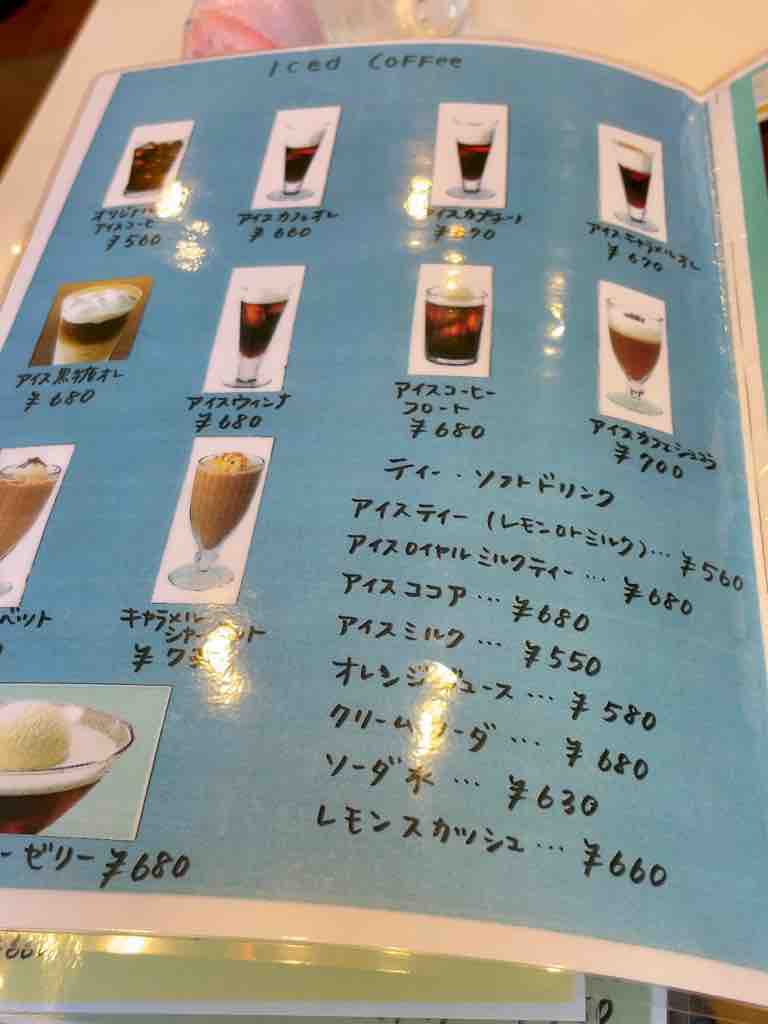 Iced Coffee
オリジナル
アイスコーヒー
¥560
アイスカフェオレ
¥660
¥670
アイスキャラメルオレ
¥670
アイス黒糖オレ
¥680
アイスウィンナ
¥680
アイスコーヒー
フロート
¥680
アイスカフェショコラ
¥700
ティー・ソフトドリンク
アイスティー(レモンorミルク)…¥560
アイスロイヤルミルクティー…¥680
アイスココア…¥680
アイスミルク…¥550
オレンジジュース…¥580
クリームソーダ…¥680
ソーダ水…¥630
レモンスカッシュ…¥660
ベット
キャラメル
シャーベット
ーゼリー ¥680